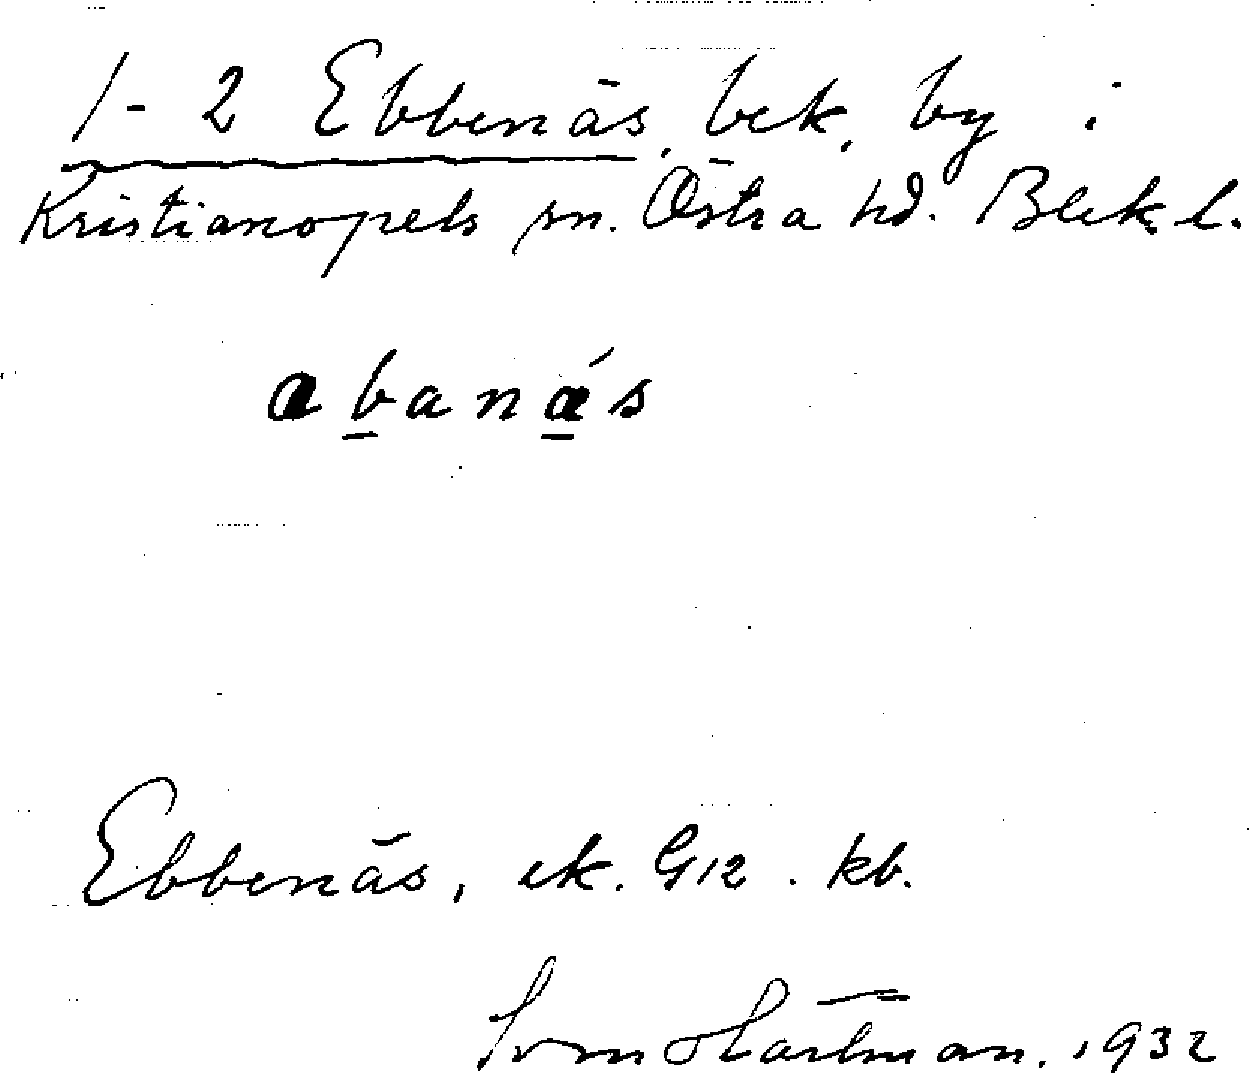 1-2 Ebbenäs, bek. by i
Kristianopels sn. Östra hd. Blek. l.
æbanæ´s
Ebbenäs, ek. G12. kb.
Sven Hartman. 1932